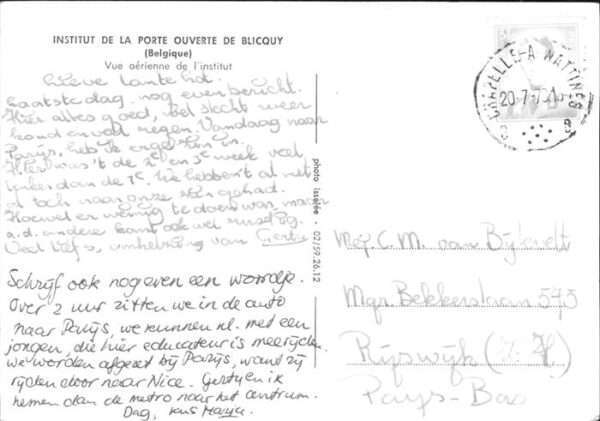 INSTITUT DE LA PORTE OUVERTE DE BLICQUY
(Belgique)
Vue aérienne de l'institut
Lieve tante
Laatste dag, nog even bericht.
Hier alles goed, wel slecht weer
koud en veel regen. Vandaag naar
Parijs, heb ik erge zin in.
Hier was 't de 2e en 3e week veel
dan de 1e. We hebben 't al met
al toch naar onze zin gehad.
Hoewel er weinig te doen was, maar
a.d. andere kant ook wel rustig.
Veel liefs, omhelzing van
Schrijf ook nog even een woordje.
Over 2 uur zitten we in de auto
naar Parijs, we kunnen nl. met een
jongen, die hier educateur is meerijden.
we worden afgezet bij Parijs, want zij
rijden door naar Nice. en ik
nemen dan de metro naar het centrum.
Dag, kus
photo isselée - 02/59.26.12
CHAPELLE-A-WATTINES
20-7-7
Mej. C. M. van Bijlevelt
Mgr. Bekkerslaan 573
Rijswijk (Z.H)
Pays-Bas